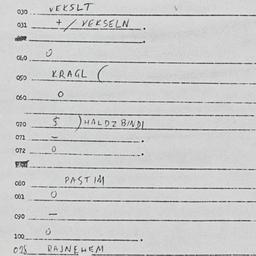 030 VEKSLT
031 +/VEKSELN
040 0
050 KRAGL (
060 0
070 $ )HALDZBINDI
071 –
072 0
080 PASTIM
081 0
090 –
100 0
RAJNEHEM